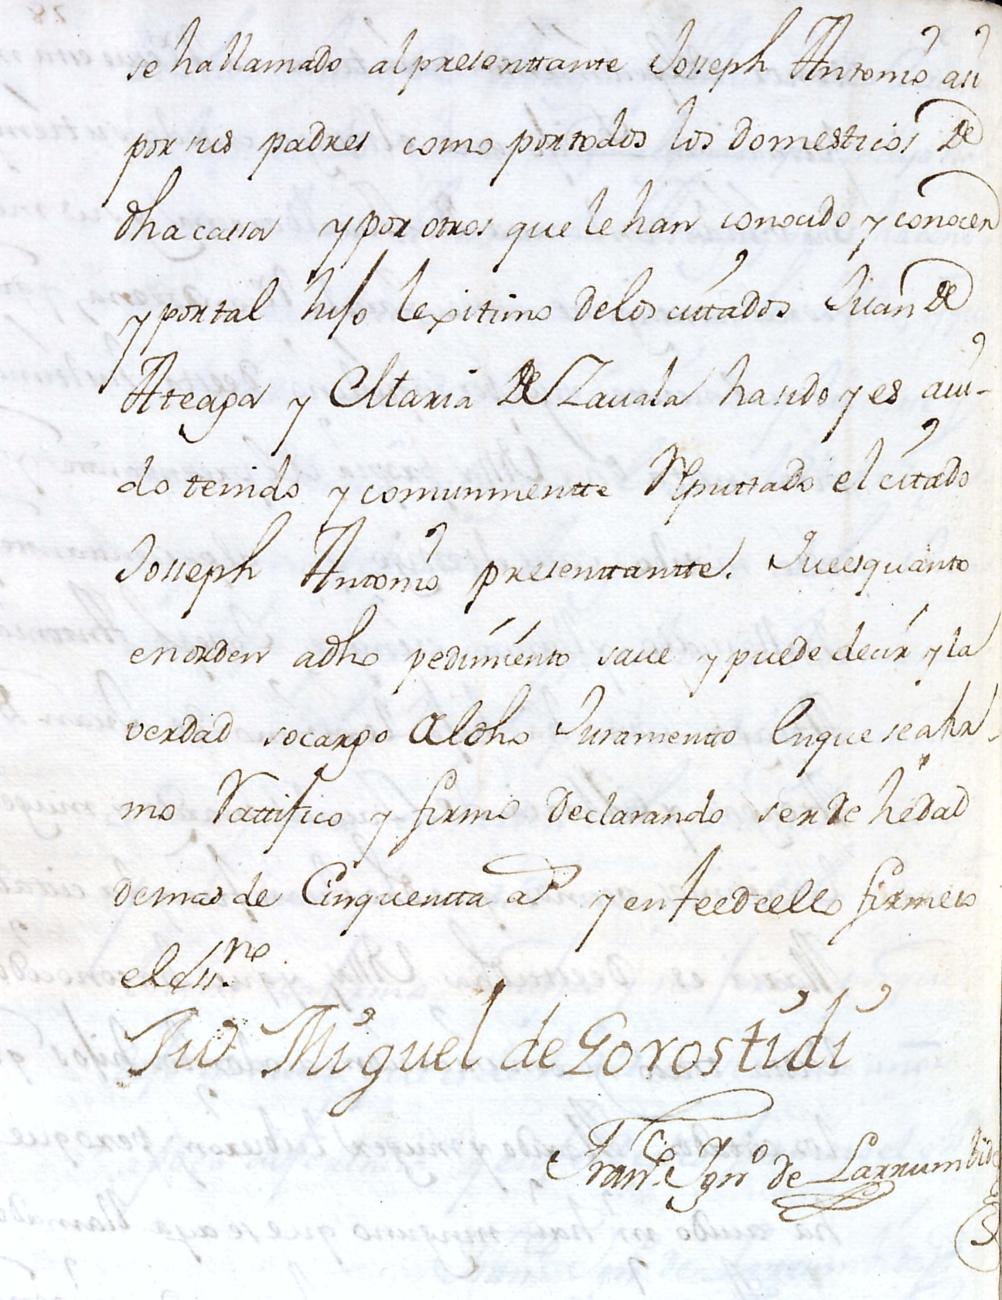 se ha llamado al presenttante Joseph Antonio asi
por sus padres como por todos los domesticos de
dha cassa y por otros que le han conocido y conocen
y por tal hijo lexitimo de los cittados Juan de
Ateaga y Maria de Zavala ha sido y es avi-
do tenido y comunmentte Rputtado el cittado
Joseph Antonio presenttantte. Que es quanto
en orden a dho pedimiento save y puede decir y la
verdad so cargo del dho Juramentto en que se afir-
mo Rattifico y firmo declarando ser de hedad
de mas de Cinquentta as y en fee de ello firme io
el essno
Miguel de Gorostidi
Franco Igno de Larrumbide